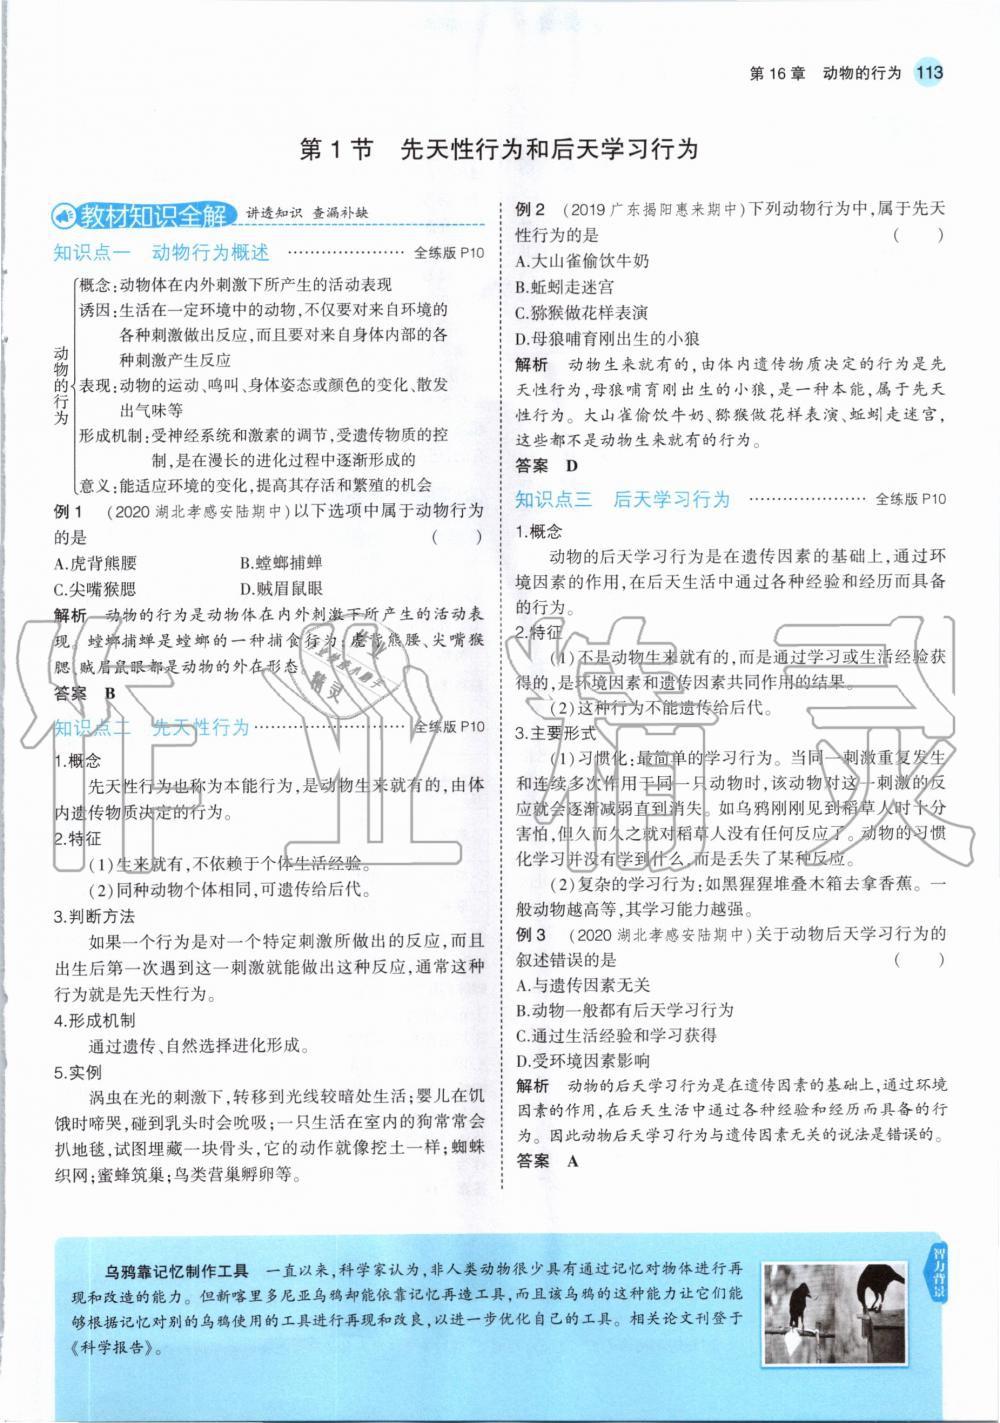 第16章 动物的行为 113
第1节 先天性行为和后天学习行为
教材知识全解 讲透知识 查漏补缺
知识点一 动物行为概述 ………………… 全练版P10
动物的行为
概念:动物体在内外刺激下所产生的活动表现
诱因:生活在一定环境中的动物,不仅要对来自环境的
各种刺激做出反应,而且要对来自身体内部的各
种刺激产生反应
表现:动物的运动、鸣叫、身体姿态或颜色的变化、散发
出气味等
形成机制:受神经系统和激素的调节,受遗传物质的控
制,是在漫长的进化过程中逐渐形成的
意义:能适应环境的变化,提高其存活和繁殖的机会
例1 (2020湖北孝感安陆期中)以下选项中属于动物行为
的是 ( )
A.虎背熊腰 B.螳螂捕蝉
C.尖嘴猴腮 D.贼眉鼠眼
解析 动物的行为是动物体在内外刺激下所产生的活动表
现。螳螂捕蝉是螳螂的一种捕食行为;虎背熊腰、尖嘴猴
腮、贼眉鼠眼都是动物的外在形态。
答案 B
知识点二 先天性行为 ……………………… 全练版P10
1.概念
先天性行为也称为本能行为,是动物生来就有的,由体
内遗传物质决定的行为。
2.特征
(1)生来就有,不依赖于个体生活经验。
(2)同种动物个体相同,可遗传给后代。
3.判断方法
如果一个行为是对一个特定刺激所做出的反应,而且
出生后第一次遇到这一刺激就能做出这种反应,通常这种
行为就是先天性行为。
4.形成机制
通过遗传、自然选择进化形成。
5.实例
涡虫在光的刺激下,转移到光线较暗处生活;婴儿在饥
饿时啼哭,碰到乳头时会吮吸;一只生活在室内的狗常常会
扒地毯,试图埋藏一块骨头,它的动作就像挖土一样;蜘蛛
织网;蜜蜂筑巢;鸟类营巢孵卵等。
例2 (2019广东揭阳惠来期中)下列动物行为中,属于先天
性行为的是 ( )
A.大山雀偷饮牛奶
B.蚯蚓走迷宫
C.猕猴做花样表演
D.母狼哺育刚出生的小狼
解析 动物生来就有的,由体内遗传物质决定的行为是先
天性行为,母狼哺育刚出生的小狼,是一种本能,属于先天
性行为。大山雀偷饮牛奶、猕猴做花样表演、蚯蚓走迷宫,
这些都不是动物生来就有的行为。
答案 D
知识点三 后天学习行为 ………………… 全练版P10
1.概念
动物的后天学习行为是在遗传因素的基础上,通过环
境因素的作用,在后天生活中通过各种经验和经历而具备
的行为。
2.特征
(1)不是动物生来就有的,而是通过学习或生活经验获
得的,是环境因素和遗传因素共同作用的结果。
(2)这种行为不能遗传给后代。
3.主要形式
(1)习惯化:最简单的学习行为。当同一刺激重复发生
和连续多次作用于同一只动物时,该动物对这一刺激的反
应就会逐渐减弱直到消失。如乌鸦刚刚见到稻草人时十分
害怕,但久而久之就对稻草人没有任何反应了。动物的习惯
化学习并没有学到什么,而是丢失了某种反应。
(2)复杂的学习行为:如黑猩猩堆叠木箱去拿香蕉。一
般动物越高等,其学习能力越强。
例3 (2020湖北孝感安陆期中)关于动物后天学习行为的
叙述错误的是 ( )
A.与遗传因素无关
B.动物一般都有后天学习行为
C.通过生活经验和学习获得
D.受环境因素影响
解析 动物的后天学习行为是在遗传因素的基础上,通过环境
因素的作用,在后天生活中通过各种经验和经历而具备的行
为。因此动物后天学习行为与遗传因素无关的说法是错误的。
答案 A
智力背景
乌鸦靠记忆制作工具 一直以来,科学家认为,非人类动物很少具有通过记忆对物体进行再
现和改造的能力。但新喀里多尼亚乌鸦却能依靠记忆再造工具,而且该乌鸦的这种能力让它们能
够根据记忆对别的乌鸦使用的工具进行再现和改良,以进一步优化自己的工具。相关论文刊登于
《科学报告》。
作业精灵